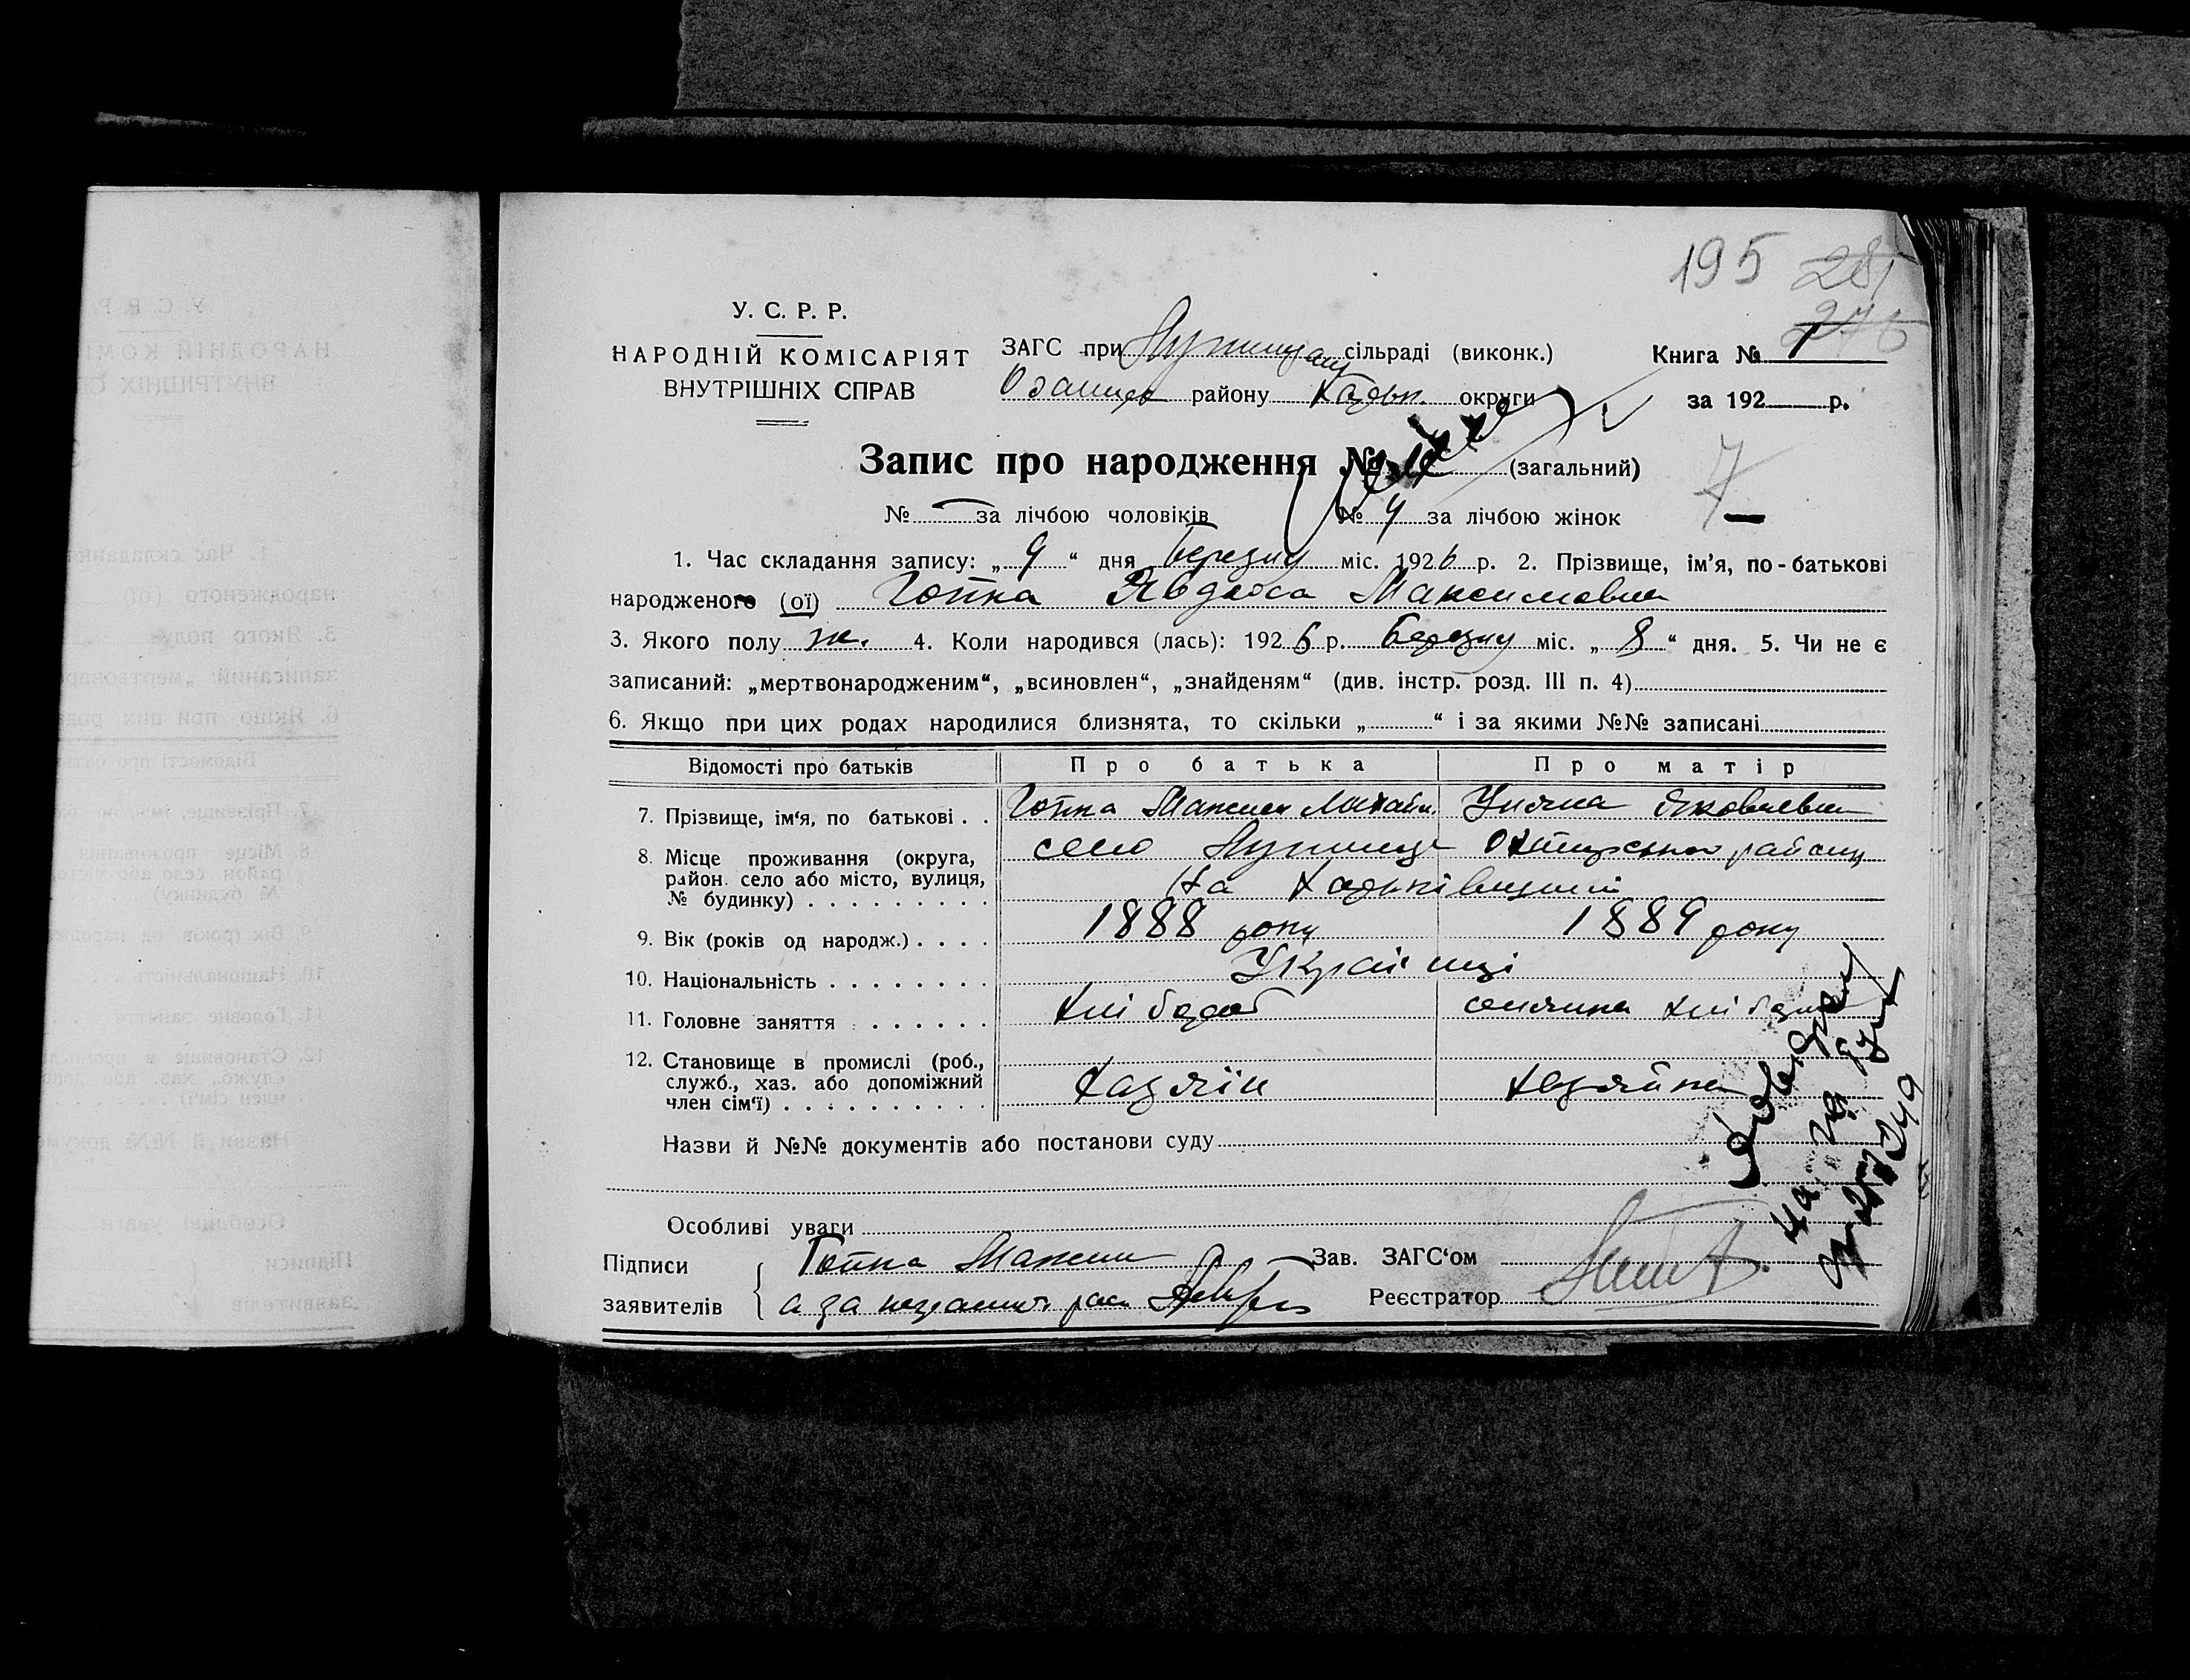 195 281
276
У. С. Р. Р.
НАРОДНІЙ КОМІСАРІЯТ
ВНУТРІШНІХ СПРАВ
ЗАГС при сільраді (виконк.)
району Харьк. округи
Книга № 1
за 192 р.
Запис про народження № (загальний)
7
№ — за лічбою чоловіків № 4 за лічбою жінок
1. Час складання запису: „ 9 “ дня березня міс. 1926 р. 2. Прізвище, ім'я, по-батькові
народженого (ої) Готка Явдоха Максимовна
3. Якого полу ж. 4. Коли народився (лась): 1926 р. березня міс. „ 8 “ дня. 5. Чи не є
записаний: „мертвонародженим“, „всиновлен“, „знайденям“ (див. інстр. розд. III п. 4)
6. Якщо при цих родах народилися близнята, то скільки „ “ і за якими №№ записані
Відомості про батьків Про батька Про матір
7. Прізвище, ім'я, по батькові . . Готка Максим Михайл. Уляна Яковлевна
8. Місце проживання (округа, район. село або місто, вулиця, № будинку) село Лутище Охтирського району
На Харьківщині
9. Вік (років од народж.) . . . . 1888 року 1889 року
10. Національність . . . . . . . . Українці
11. Головне заняття . . . . . . . хлібороб селянка хлібороб
12. Становище в промислі (роб., служб., хаз. або допоміжний член сім'ї) . . . . . . . . . . Хазяїн Хазяйка
Назви й №№ документів або постанови суду
Особливі уваги
Підписи
заявителів
Готка Максим
а за неграмот. рос.
Зав. ЗАГС'ом
Реєстратор